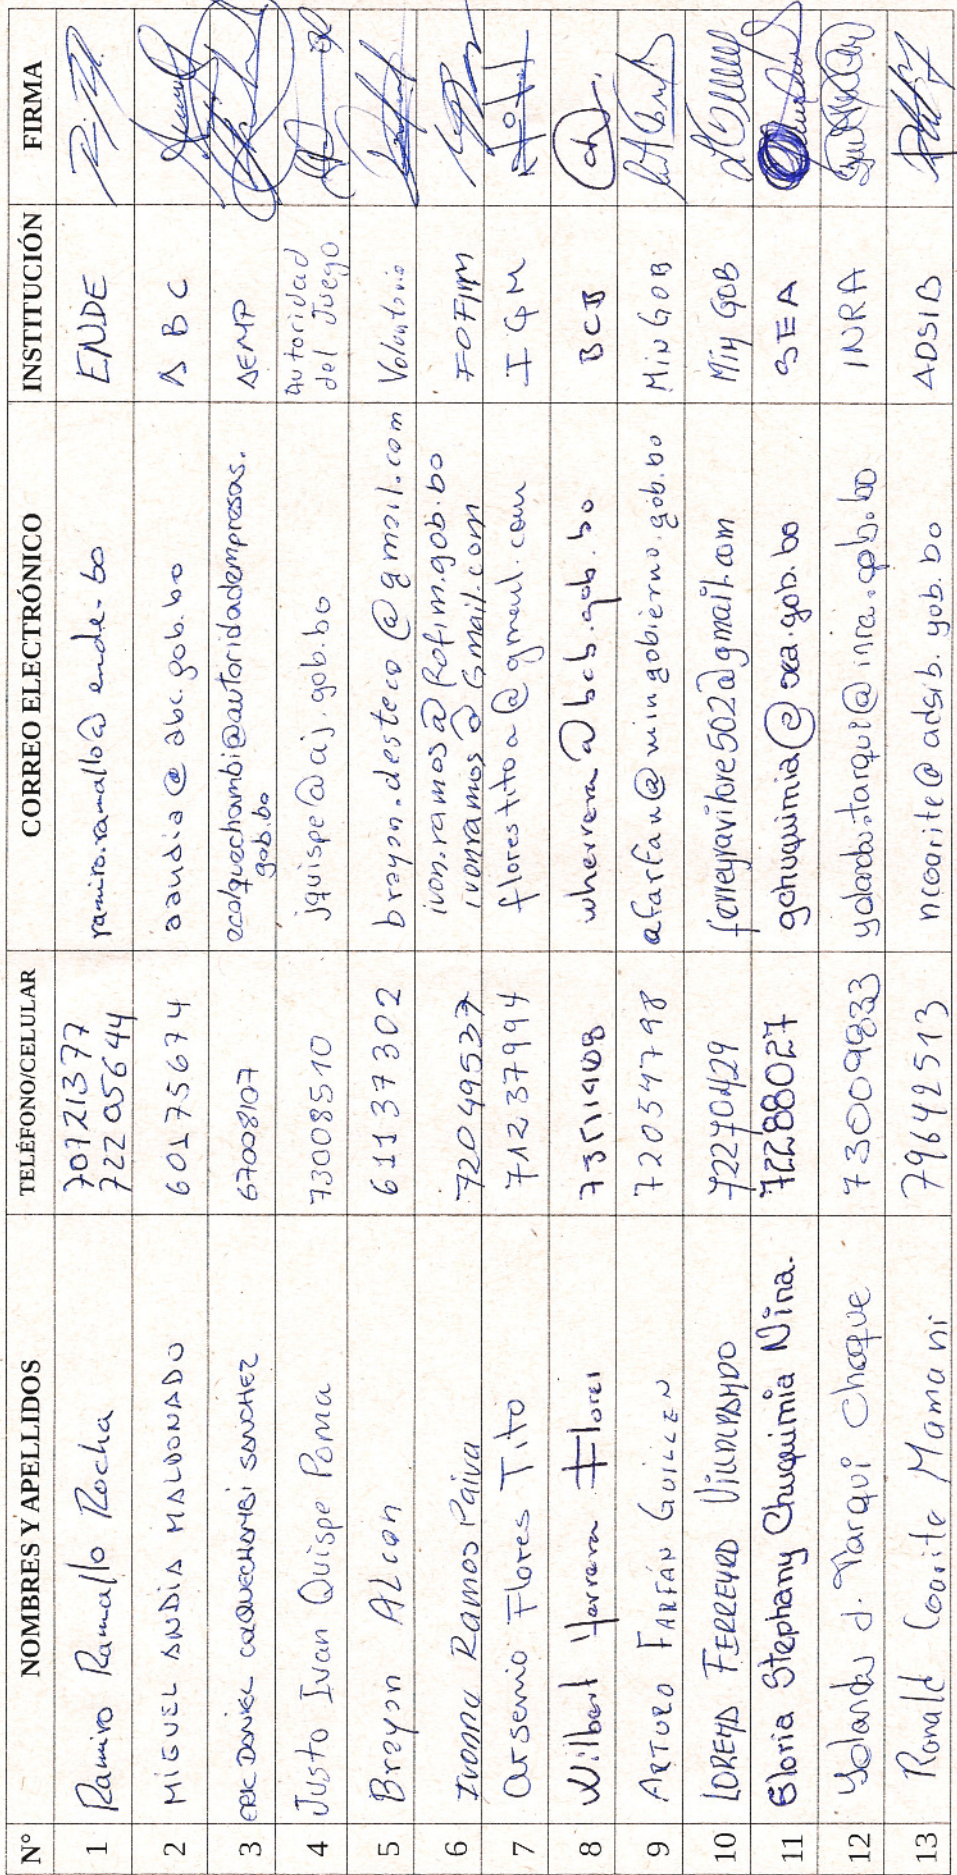 N° NOMBRES Y APELLIDOS TELÉFONO/CELULAR CORREO ELECTRÓNICO INSTITUCIÓN FIRMA
1 Ramiro Ramallo Rocha 70721377 72205644 ramiro.ramallo@ende.bo ENDE
2 MIGUEL ANDIA MALDONADO 60175674 aandia@abc.gob.bo ABC
3 ERIK DANIEL COLQUECHAMBI SANCHEZ 67008107 ecolquechambi@autoridadempresas.gob.bo AEMP
4 Justo Ivan Quispe Poma 73008510 jquispe@aj.gob.bo Autoridad del Juego
5 Brayan ALcon 61137302 brayan.desteco@gmail.com Voluntario
6 Ivonne Ramos Paiva 72049537 ivon.ramos@fofim.gob.bo ivonramos@Gmail.com FOFIM
7 Arsenio Flores Tito 71237994 florestito a@gmail.com IGM
8 Wilbert Herrera Flores wherrera@bcb.gob.bo BCB
9 ARTURO FARFÁN GUILLEN 72054798 afarfan@mingobierno.gob.bo MIN GOB
10 LORENA FERREYRA 72270429 ferreyravilore502@gmail.com Min GOB
11 Gloria Stephany Chuquimia Nina. 72288027 gchuquimia@sea.gob.bo SEA
12 Yolanda J. Tarqui Choque 73009833 yolanda.tarqui@inra.gob.bo INRA
13 Ronald Coarite Mamani 79642513 rcoarite@adsib.gob.bo ADSIB